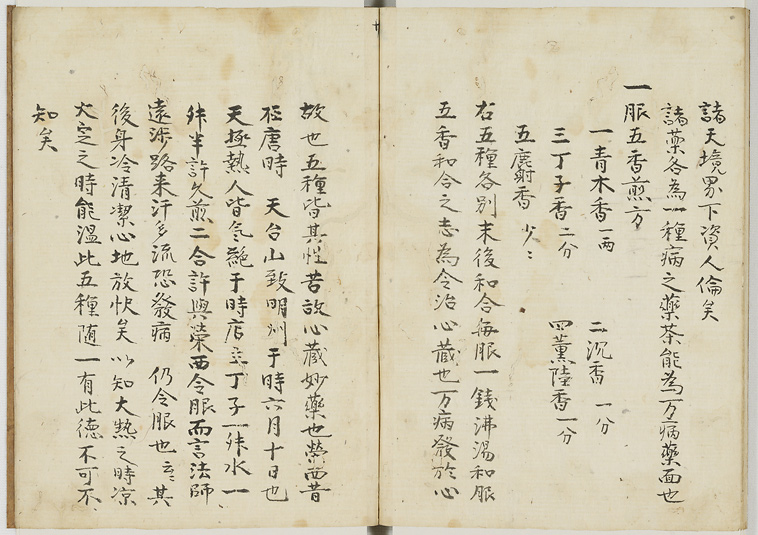 諸天境界下資人倫矣
諸薬各為一種病之薬茶能為万病薬而也
一服五香煎方
一青木香一両 二沉香一分
三丁子香二分 四薫陸香一分
五麝香少〻
右五種各別末後和合毎服一銭沸湯和服
五香和合之志為令治心蔵也万病發於心
故也五種皆其性苦故心蔵妙薬也榮西昔
在唐時 天台山致明州于時六月十日也
天極熱人皆氣絶于時店主丁子一升水一
升半許久煎二合許與榮西令服而言法師
遠渉路来汗多流恐發病 仍令服也云〻其
後身冷清潔心地放快矣以知大熱之時凉
大寒之時能温此五種随一有此徳不可不
知矣